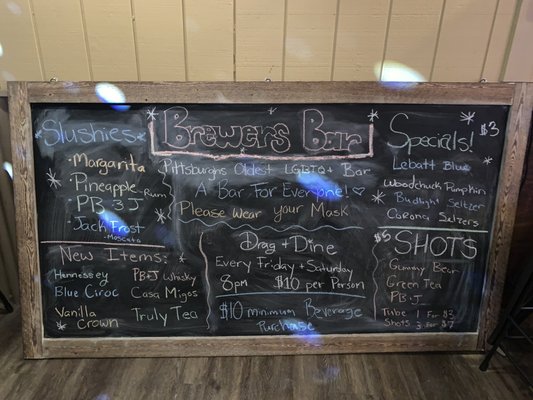 Slushies
- Margarita
- Pineapple-Rum
- PB & J
- Jack Frost
-Moscato
New Items:
Hennessey
Blue Ciroc
Vanilla
Crown
PB+J Whisky
Casa Migos
Truly Tea
Brewers Bar
Pittsburghs Oldest LGBTQA+ Bar
A Bar For Everyone!
Please Wear your Mask
Drag + Dine
Every Friday + Saturday
8pm $10 per Person
$10 minimum Beverage
Purchase
Specials! $3
Labatt Blue
Woodchuck Pumpkin
Budlight Seltzer
Corona Seltzers
$5 SHOTS
Gummy Bear
Green Tea
PB+J
Tube 1 For $3
Shots 3 For $7